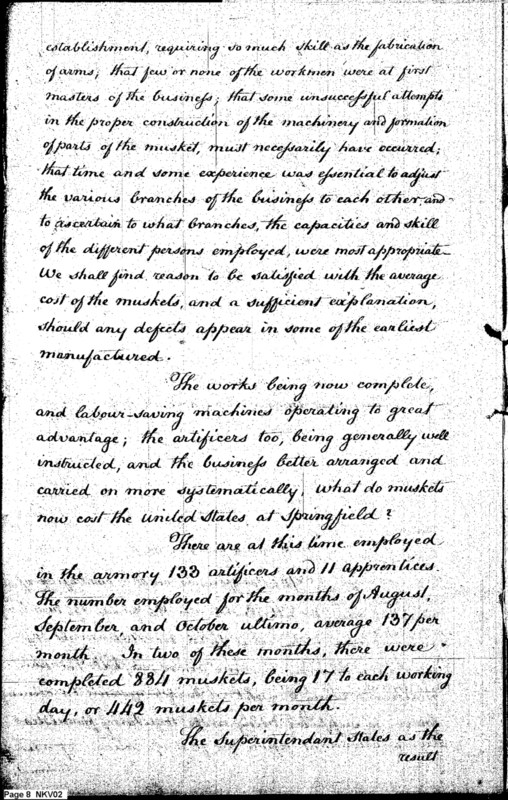 establishment, requiring so much skill as the fabrication
of arms; that few or none of the workmen were at first
masters of the business; that some unsuccessful attempts
in the proper construction of the machinery and formation
of parts of the musket, must necessarily have occurred;
that time and some experience was essential to adjust
the various branches of the business to each other and
to ascertain to what branches, the capacities and skill
of the different persons employed, were most appropriate—
We shall find reason to be satisfied with the average
cost of the muskets, and a sufficient explanation,
should any defects appear in some of the earliest
manufactured.
The works being now complete,
and labour-saving machines operating to great
advantage; the artificers too, being generally well
instructed, and the business better arranged and
carried on more systematically, what do muskets
now cost the United States at Springfield?
There are at this time employed
in the armory 133 artificers and 11 apprentices.
The number employed for the months of August,
September, and October ultimo, average 137 per
month In two of these months, there were
completed 884 muskets, being 17 to each working
day, or 442 muskets per month.
The Superintendant States as the
result
Page 8 NKV02